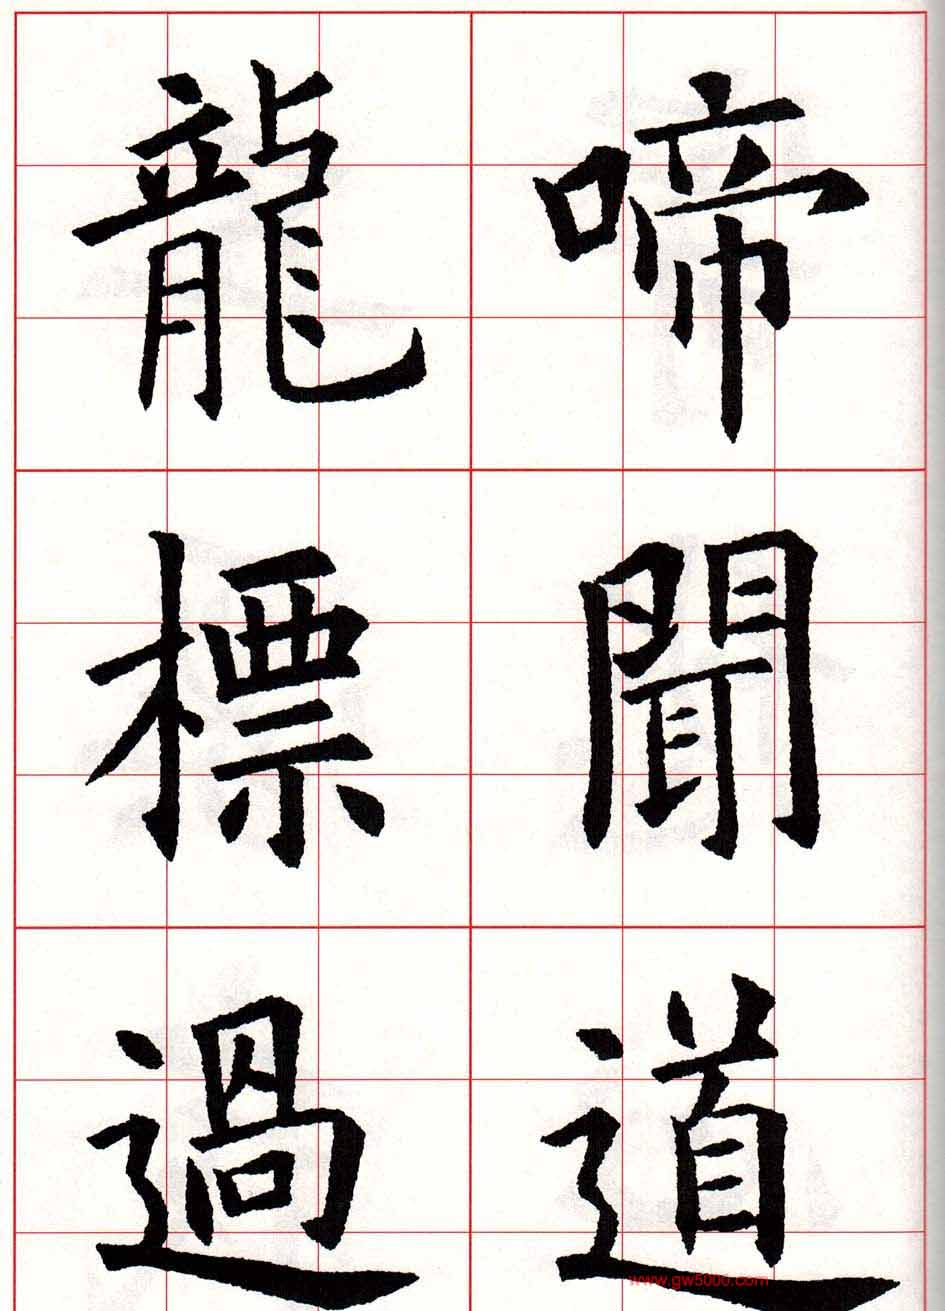 啼聞道
龍標過
www.gw5000.com